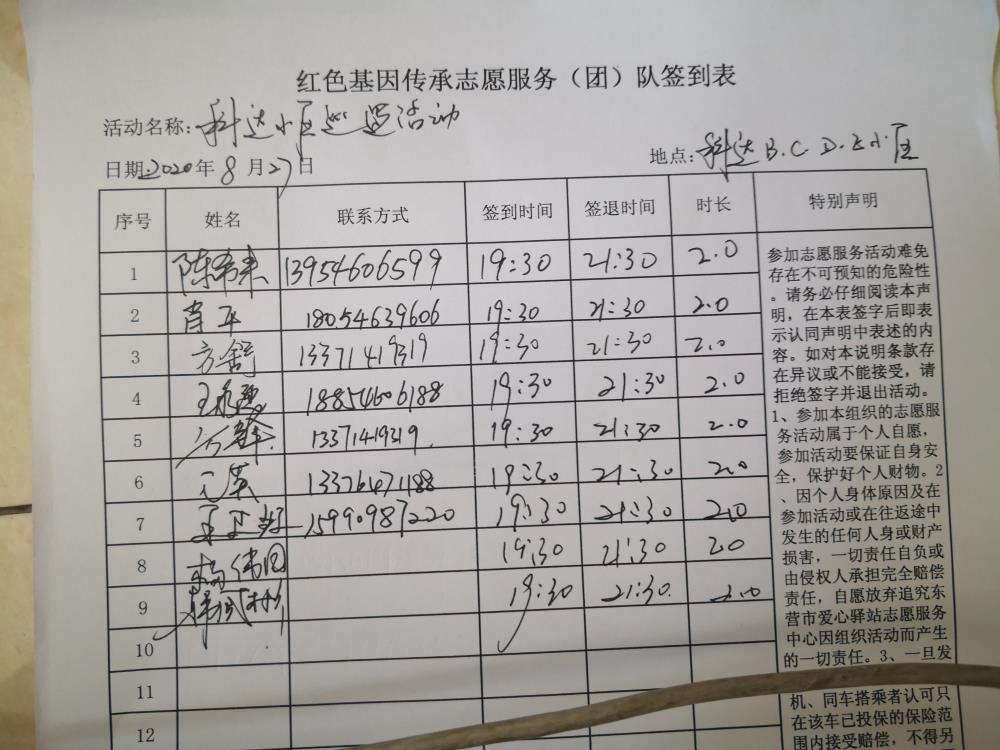 红色基因传承志愿服务（团）队签到表
活动名称：科达小区巡逻活动
日期：2020年8月27日 地点：科达B.C.D.E小区
序号 姓名 联系方式 签到时间 签退时间 时长 特别声明
1 陈希来 13954606599 19:30 21:30 2.0
2 肖平 18054639606 19:30 21:30 2.0
3 13371419319 19:30 21:30 2.0
4 18854606188 19:30 21:30 2.0
5 13371419319. 19:30 21:30 2.0
6 13376471188 19:30 21:30 2.0
7 15990987220 19:30 21:30 2.0
8 杨伟国 19:30 21:30 2.0
9 19:30 21:30 2.0
10
11
12
参加志愿服务活动难免
存在不可预知的危险性
。请务必仔细阅读本声
明，在本表签字后即表
示认同声明中表述的内
容。如对本说明条款存
在异议或不能接受，请
拒绝签字并退出活动。
1、参加本组织的志愿服
务活动属于个人自愿，
参加活动要保证自身安
全，保护好个人财物。2
、因个人身体原因及在
参加活动或在往返途中
发生的任何人身或财产
损害，一切责任自负或
由侵权人承担完全赔偿
责任，自愿放弃追究东
营市爱心驿站志愿服务
中心因组织活动而产生
的一切责任。3、一旦发
机、同车搭乘者认可只
在该车已投保的保险范
围内接受赔偿，不得另